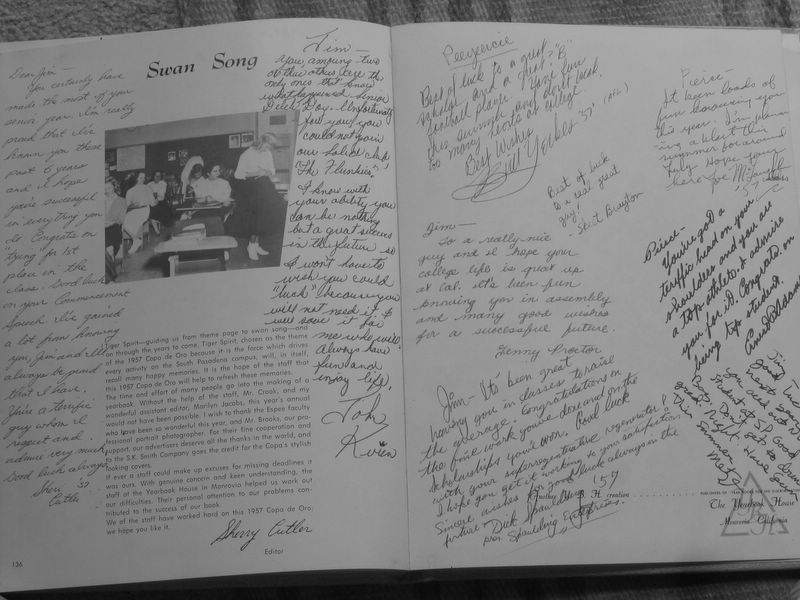 Swan Song
Dear Jim —
You certainly have
made the most of your
senior year. I'm really
proud that I've
known you these
past 6 years
and I hope
you're successful
in everything you
do. Congrats on
tying for 1st
place in the
class. Good luck
on your Commencement
Speech. I've gained
a lot from knowing
you, Jim and I'll
always be proud
that I have.
You're a terrific
guy whom I
respect and
admire very much.
Good luck always
Sheri '57
Cutler
Jim —
You, among two
or three others, are the
only ones that know
what happened Senior
Ditch Day. Unfortunately
for you, you
could not join
our select club
"The Flunkies."
I know with
your ability you
can be nothing
but a great success
in the future so
I won't have to
wish you good
"luck" because you
will not need it. I
will save it for
me who will.
Always have
fun and
enjoy life,
Tom
Tiger Spirit—guiding us from theme page to swan song—and
on through the years to come. Tiger Spirit, chosen as the theme
of the 1957 Copa de Oro because it is the force which drives
every activity on the South Pasadena campus, will, in itself,
recall many happy memories. It is the hope of the staff that
this 1957 Copa de Oro will help to refresh these memories.
The time and effort of many people go into the making of a
yearbook. Without the help of the staff, Mr. Crook, and my
wonderful assistant editor, Marilyn Jacobs, this year's annual
would not have been possible. I wish to thank the Espee faculty
who have been so wonderful this year, and Mr. Brooks, our pro-
fessional portrait photographer. For their fine cooperation and
support, our advertisers deserve all the thanks in the world, and
to the S.K. Smith Company goes the credit for the Copa's stylish
looking covers.
If ever a staff could make up excuses for missing deadlines it
was ours. With genuine concern and keen understanding, the
staff at the Yearbook House in Monrovia helped us work out
our difficulties. Their personal attention to our problems con-
tributed to the success of our book.
We of the staff have worked hard on this 1957 Copa de Oro;
we hope you like it.
Sherry Cutler
Editor
136
Best of luck to a great
scholar and a great "B"
football player. Have fun
this summer and don't look
too many teeth at college
Best Wishes
Bill Yerkes '57
Best of luck
to a real great
guy!
Stert Brayton
Pierce —
It been loads of
fun knowing you
this year. I'm plann-
ing a blast this
summer so around
July. Hope your
here
Joe
'57
Jim —
To a really nice
guy and I hope your
college life is great up
at Cal. It's been fun
knowing you in assembly
and many good wishes
for a successful future.
Jenny Proctor
Pierce —
You've got a
terrific head on your
shoulders and you are
a top athlete. I admire
you for it. Congrats. on
being top student.
Jim — It's been great
having you in classes to raise
the average. Congratulations on
the fine work you've done and on the
scholarships you won. Good luck
with your superregenerative regenerator &
I hope you get it working to your satisfaction.
Sincere wishes for good luck always in the
future
Dick Spaulding '57
pres. Spaulding Enterprises.
Another creation
PUBLISHERS OF YEAR BOOKS FOR THE
The Yearbook House
Monrovia · California
Jim,